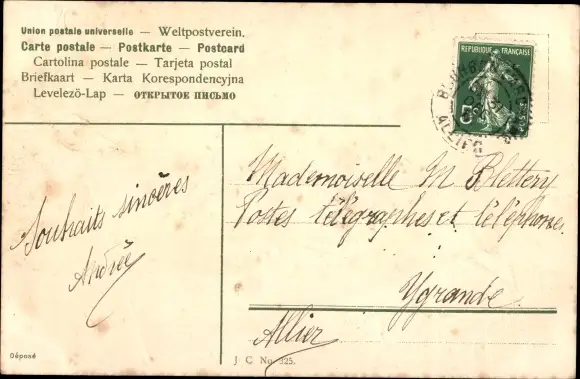 Union postale universelle — Weltpostverein.
Carte postale — Postkarte — Postcard
Cartolina postale — Tarjeta postal
Briefkaart — Karta Korespondencyjna
Levelező-Lap — ОТКРЫТОЕ ПИСЬМО
REPUBLIQUE FRANÇAISE
5
ALLIER
Souhaits sincères
Andrée
Mademoiselle M Blettery
Postes télégraphes et téléphones
Ygrande
Allier
Déposé
J C No. 325.